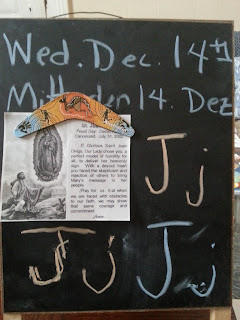 Wed. Dec. 14th
Mittwoch den 14. Dez
Feast Day: Dece
Canonized: July 31, 2002
O Glorious Saint Juan
Diego, Our Lady chose you, a
perfect model of humility for
all, to deliver her heavenly
sign. With a devout heart
you faced the skepticism and
rejection of others to bring
Mary's message to her
people.
Pray for us that when
we are faced with obstacles
to our faith, we may show
that same courage and
commitment.
Amen.
J j
J j
J j